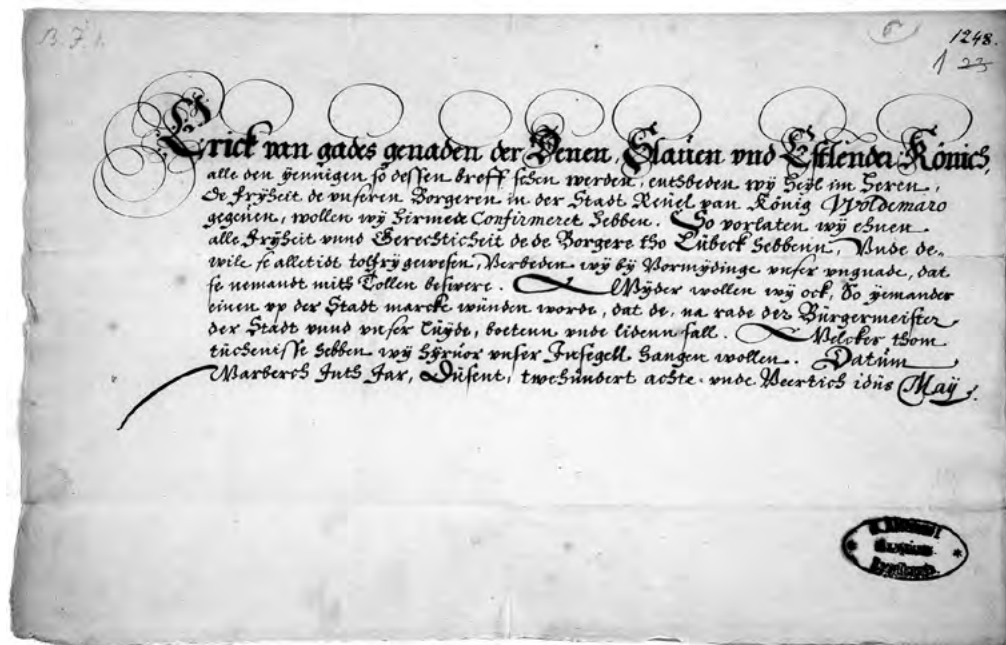 B. F. 1.
1248.
1 23
Erick van gades genaden der Denen, Slauen vnd Estlender Könich,
alle den yennigen so dessen breff sehen werden, entbeden wy Heyl im Heren,
de fryheit de vnseren Borgeren in der Stadt Reuel van König Woldemaro
gegeuen, wollen wy hirmede Confirmeret hebben. So vorlaten wy ehnen
alle fryheit vnnd Gerechticheit de de Borgere tho Lübeck hebbenn, Vnde de-
wile se alletidt tolfry gewesen, Verbeden wy by Vormydinge vnser vngnade, dat
se nemandt mith Tollen beswere. Wyder wollen wy ock, So yemandes
einen vp der Stadt marcke wünden worde, dat de, na rade der Bürgermeister
der Stadt vnnd vnser lüyde, boetenn vnde lidenn sall. Welckes thom
tüchenisse hebben wy hyruor vnser Insegell hangen wollen. Datüm
Warberch Inth Jar, Düsent, twehündert achte vnde Veertich idüs Maÿ.